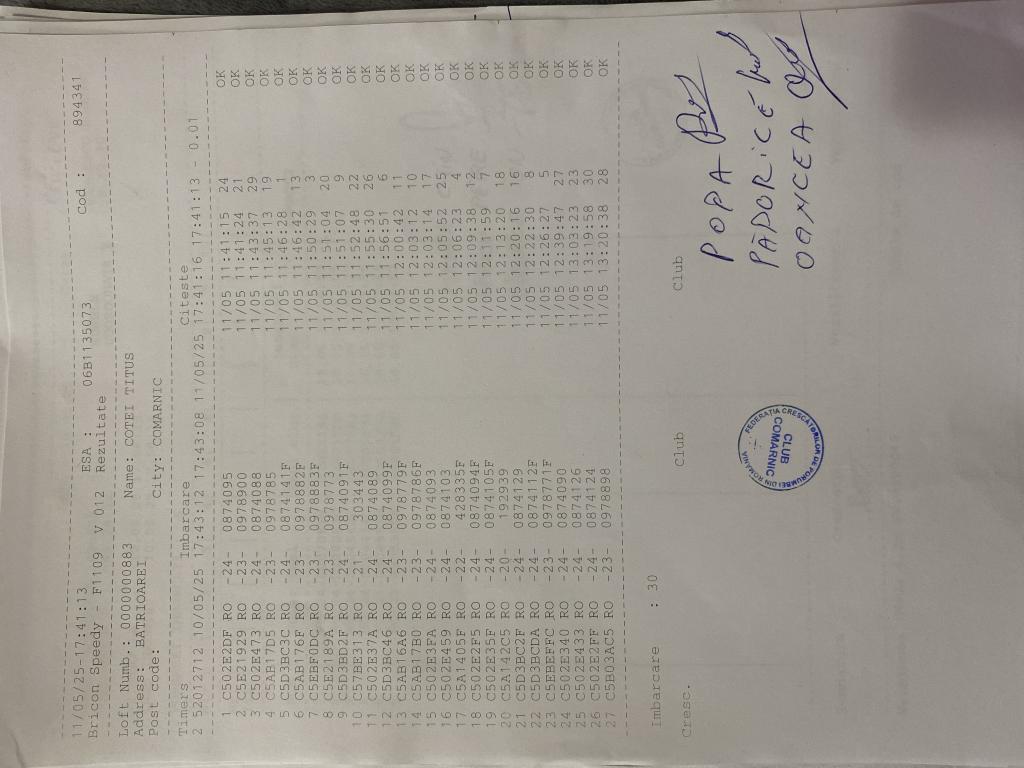 11/05/25-17:41:13 ESA : 06B1135073 Cod : 894341
Bricon Speedy : F1109 V 012 Rezultate
Loft Numb.: 0000000883 Name: COTEI TITUS
Address: BATRIOAREI
Post code: City: COMARNIC
Timers Imbarcare Citeste
2 52012712 10/05/25 17:43:12 17:43:08 11/05/25 17:41:16 17:41:13 - 0.01
1 C502E2DF RO -24- 0874095 11/05 11:41:15 24 OK
2 C5E21929 RO -23- 0978900 11/05 11:41:24 21 OK
3 C502E473 RO -24- 0874088 11/05 11:43:37 29 OK
4 C5AB17D5 RO -23- 0978785 11/05 11:45:13 19 OK
5 C5D3BC3C RO -24- 0874141F 11/05 11:46:28 1 OK
6 C5AB176F RO -23- 0978882F 11/05 11:46:42 13 OK
7 C5EBF0DC RO -23- 0978883F 11/05 11:50:29 3 OK
8 C5E2189A RO -23- 0978773 11/05 11:51:04 20 OK
9 C5D3BD2F RO -24- 0874091F 11/05 11:51:07 9 OK
10 C57BE313 RO -21- 303443 11/05 11:52:48 22 OK
11 C502E37A RO -24- 0874089 11/05 11:55:30 26 OK
12 C5D3BC46 RO -24- 0874099F 11/05 11:56:51 6 OK
13 C5AB16A6 RO -23- 0978779F 11/05 12:00:42 11 OK
14 C5AB17B0 RO -23- 0978786F 11/05 12:03:12 10 OK
15 C502E3FA RO -24- 0874093 11/05 12:03:14 17 OK
16 C502E459 RO -24- 0874103 11/05 12:05:52 25 OK
17 C5A1405F RO -22- 428335F 11/05 12:06:23 4 OK
18 C502E2F5 RO -24- 0874094F 11/05 12:09:38 12 OK
19 C502E35F RO -24- 0874105F 11/05 12:11:59 7 OK
20 C5A142C5 RO -20- 192939 11/05 12:13:20 18 OK
21 C5D3BC2F RO -24- 0874129 11/05 12:20:16 16 OK
22 C5D3BCDA RO -24- 0874112F 11/05 12:22:30 8 OK
23 C5EBEFFC RO -23- 0978771F 11/05 12:26:27 5 OK
24 C502E340 RO -24- 0874090 11/05 12:39:47 27 OK
25 C502E433 RO -24- 0874126 11/05 13:03:23 23 OK
26 C502E2FF RO -24- 0874124 11/05 13:16:58 30 OK
27 C5B03AC5 RO -23- 0978898 11/05 13:20:38 28 OK
Imbarcare : 30
Cresc. Club Club
POPA
PĂDURICE
OANCEA
FEDERAȚIA CRESCĂTORILOR DE PORUMBEI DIN ROMÂNIA
CLUB
COMARNIC